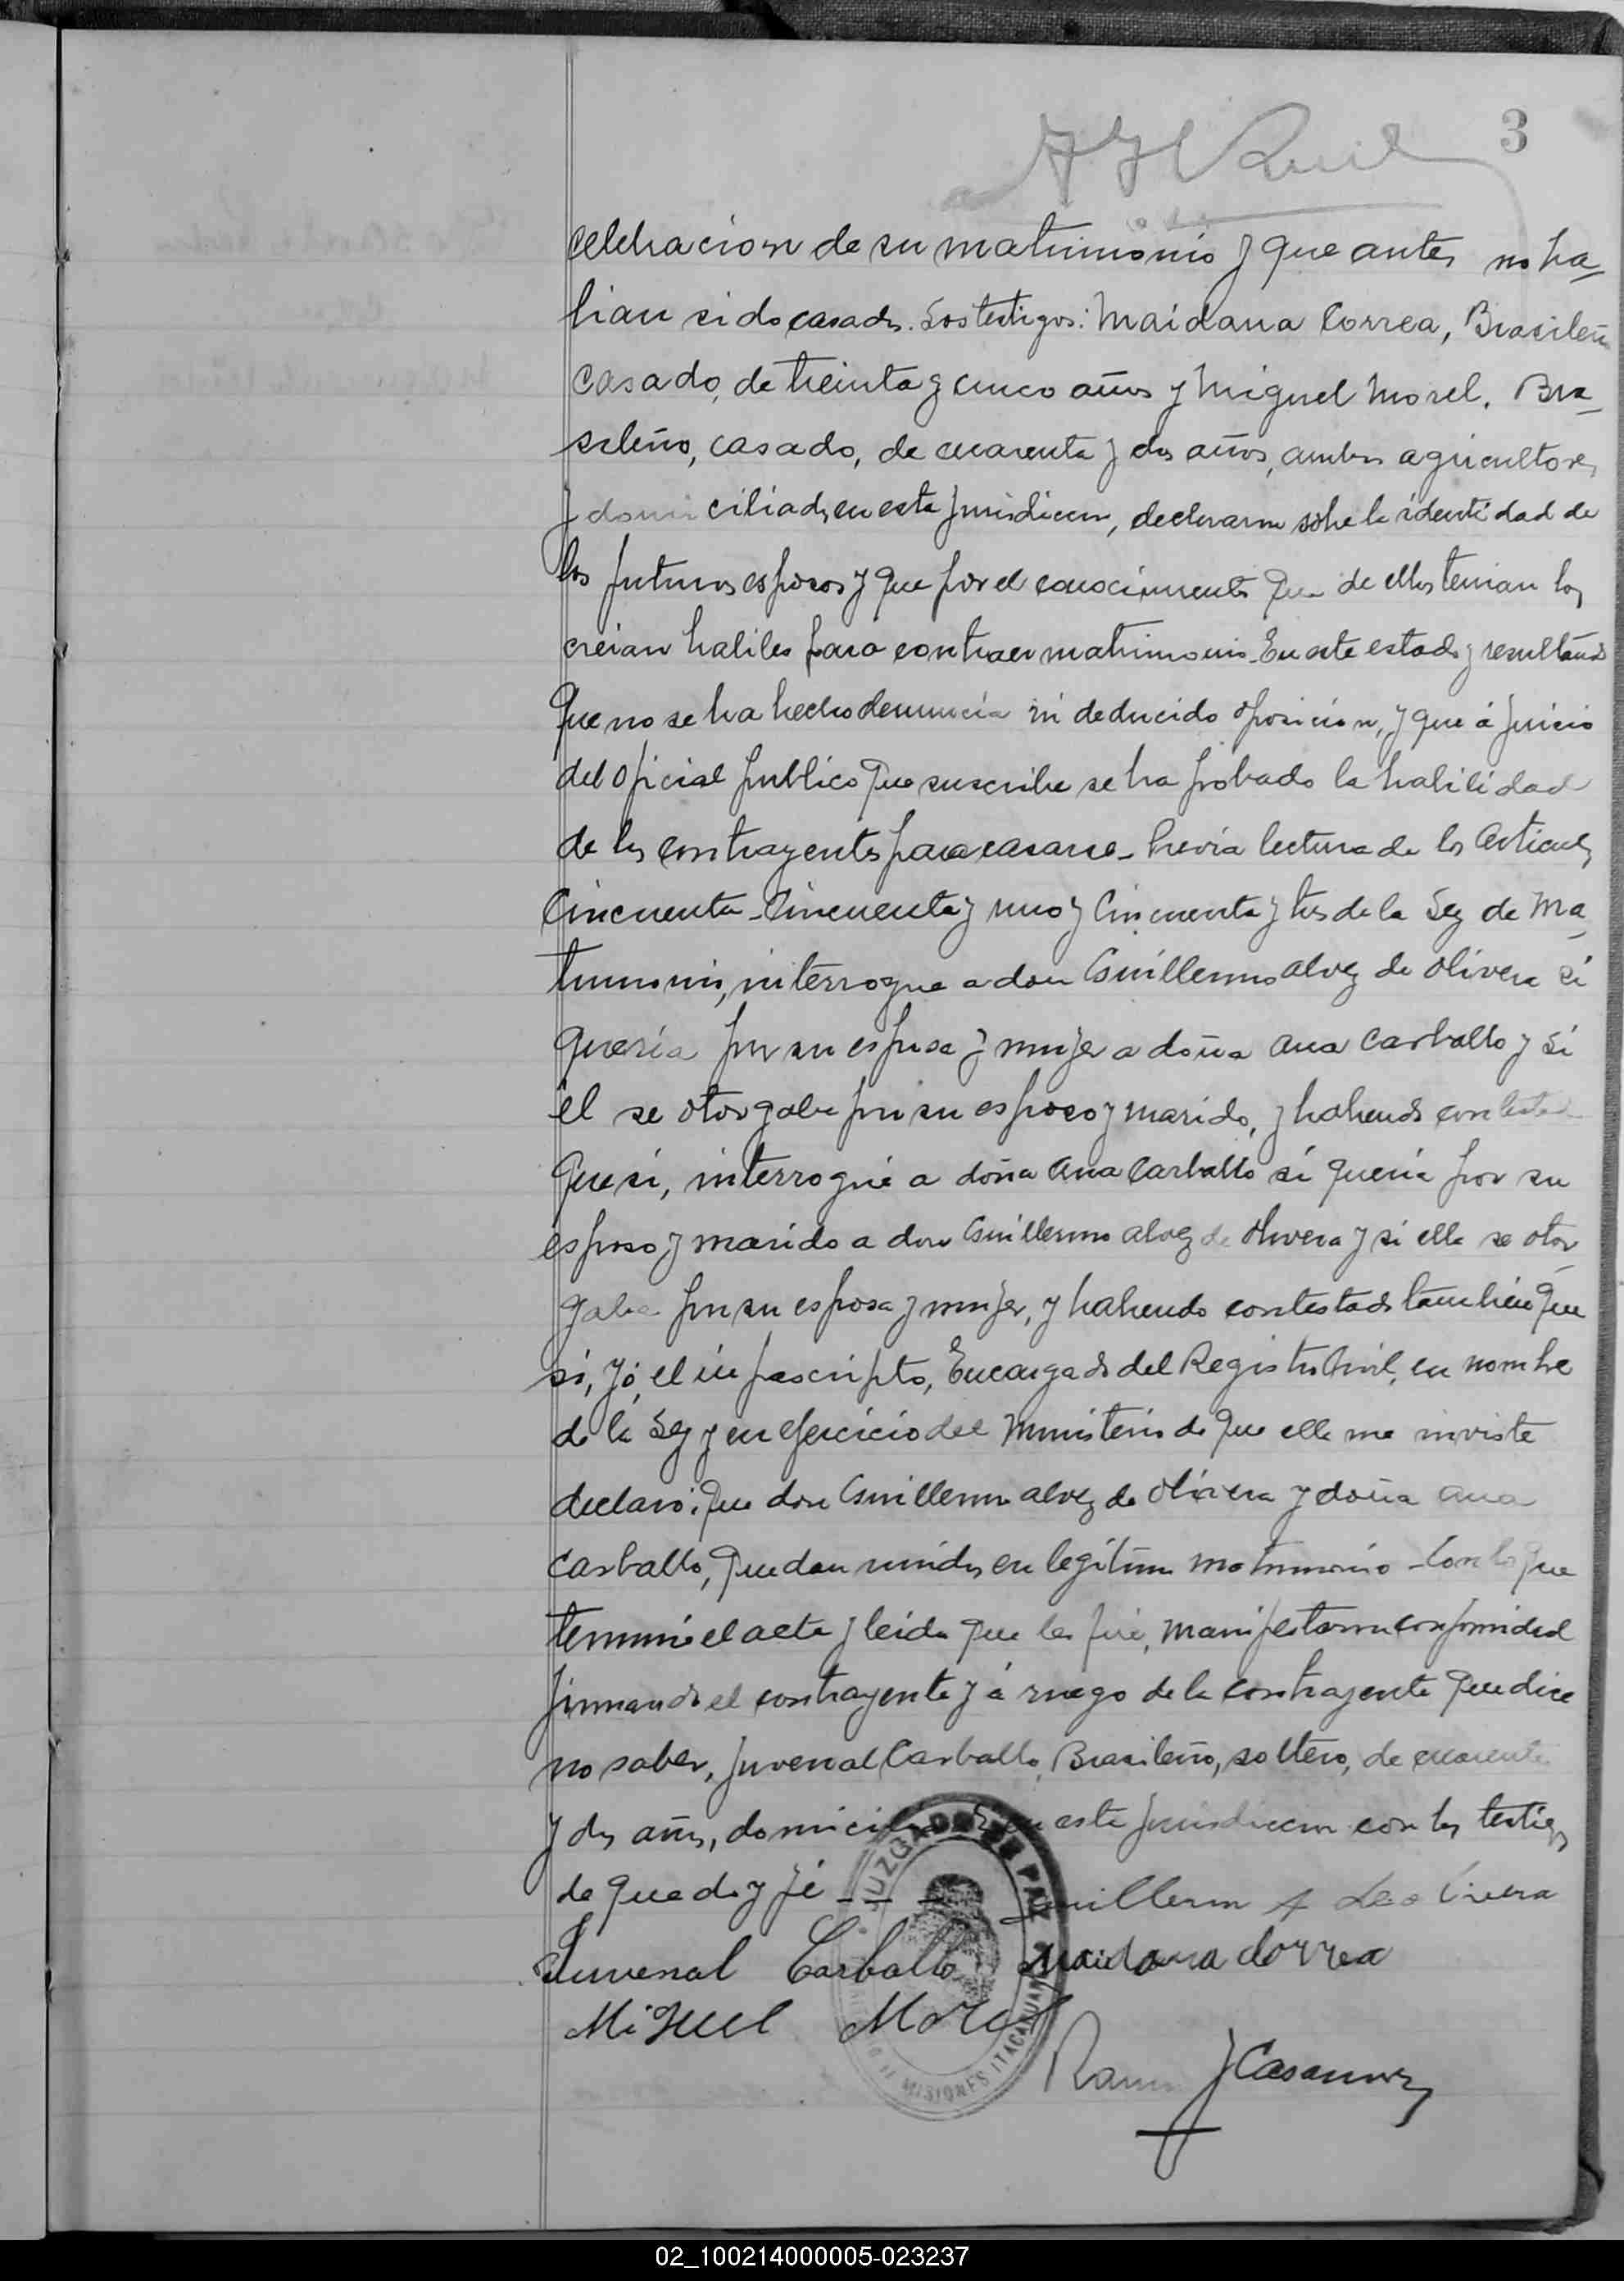 3
celebracion de su matrimonio y que antes no ha=
bian sido casados. Los testigos: Maidana Correa, Brasileño
casado, de treinta y cinco años y Miguel Morel, Bra=
sileño, casado, de cuarenta y dos años, ambos agricultores
y domiciliados en esta jurisdiccion, declararon sobre la identidad de
los futuros esposos y que por el conocimiento que de ellos tenian los
creian habiles para contraer matrimonio. En este estado y resultando
que no se ha hecho denuncia ni deducido oposicion, y que á juicio
del oficial publico que suscribe se ha probado la habilidad
de los contrayentes para casarse_ Previa lectura de los articulos
Cincuenta_Cincuenta y uno y Cincuenta y tres de la Ley de Ma_
trimonio, interrogue a don Guillermo Alvez de Olivera si
queria por su esposa y mujer a doña Ana Carballo y si
él se otorgaba por su esposo y marido, y habiendo contestado
que si, interrogué a doña Ana Carballo si queria por su
esposo y marido a don Guillermo Alvez de Olivera y si ella se otor_
gaba por su esposa y mujer, y habiendo contestado tambien que
si, yó, el infrascripto, Encargado del Registro Civil, en nombre
de la Ley y en ejercicio del Ministerio de que ella me inviste
declaro: que don Guillermo Alvez de Olivera y doña Ana
Carballo, quedan unidos en legitimo matrimonio_Con lo que
terminó el acta y leida que les fué, manifestaron conformidad
firmando el contrayente y á ruego de la contrayente que dice
no saber, Juvenal Carballo, Brasileño, soltero, de cuarenta
y dos años, domiciliado en esta jurisdiccion con los testigos
de que doy fé _ _ _ Guillermo A de olivera
Juvenal Carballo Maidana Correa
Miguel Morel
JUZGADO DE PAZ
MISIONES ITACARUARE
Ramon J Casanova
02_100214000005-023237